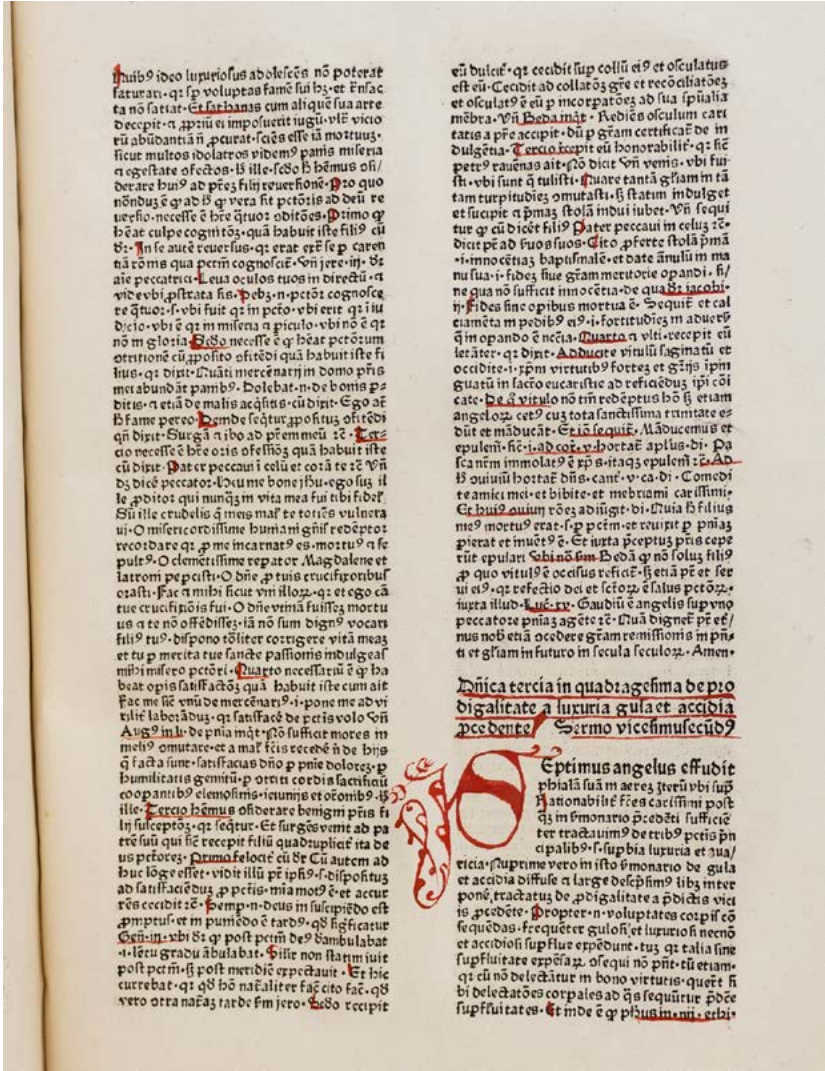 Quibꝰ ideo luxuriosus adolescēs nō poterat
saturari · qꝛ sꝑ voluptas famē sui hꝫ · et
ta nō satiat · Et sathanas cum aliquē sua arte
decepit · a ꝓpriū ei imposuerit iugū · vl̄r vicio
rū abūdantiā ꝓcurat · sciēs esse iā mortuuꝫ ·
sicut multos idolatros videmꝰ panis miseria
a egestate ɔfectos · ille · scđo hēmus ɔsi/
derare huiꝰ ad pꝛeꝫ filij reuersionē · Pro quo
nōnduꝫ ē vera fit pctōris ad deū re
uersio · necesse ē hꝛe ɔditōes · Primo
heat culpe cognitōꝫ · quā habuit iste filiꝰ cū
đꝛ · In se autē reuersus · qꝛ erat caren
tiā qua pctm̄ cognoscit · Vn̄ jere · iij · đꝛ
aīe peccatrici · Leua oculos tuos in directū · a
vide vbi ꝓstrata sis · pctōꝛ cognosce
re · s · vbi fuit qꝛ in pctō · vbi erit qꝛ ī iu
dicio · vbi ē qꝛ in miseria a ꝑiculo · vbi nō ē qꝛ
nō in gloria · Scđo necesse ē heat pctōrum
ɔtritionē cū ꝓposito ɔfitēdi quā habuit iste fi
lius · qꝛ dixit · Quāti mercēnarij in domo pris
mei abundāt panibꝰ · Dolebat · n · de bonis ꝑ-
ditis · a etiā de malis · cū dixit · Ego aūt
fame pereo · Deinde seq̄tur ꝓpositꝰ ɔfitēdi
qn̄ dixit · Surgā a ibo ad pꝛem meū ꝛc̄ · Ter-
cio necesse ē hꝛe oris ɔfessiōꝫ quā habuit iste
cū dixit · Pater peccaui ī celū et corā te ꝛc̄ Vn̄
dꝫ dicē peccator · Heu me bone jhu · ego suꝫ il
le ꝓditor qui nunqꝫ in vita mea fui tibi
Sū ille crudelis meis te totiēs vulnera
ui · O misericordissime humani redēptor
recordare ꝓ me incarnatꝰ es · mortuꝰ a se
pultꝰ · O clemētissime reꝑator Magdalene et
latroni peꝑcisti · O dn̄e ꝓ tuis crucifixoribus
orasti · Fac a mihi sicut vni illoꝝ · qꝛ et ego cā
tue crucifixiōis fui · O dn̄e vtinā fuisseꝫ mortu
us a te nō offēdisseꝫ · iā nō sum dignꝰ vocari
filiꝰ tuꝰ · dispono corrigere vitā meaꝫ
et tu ꝑ merita tue sancte passionis indulgeas
mihi misero pctōri · Quarto necessariū ē ha
beat opis satisfactōꝫ quā habuit iste cum ait
Fac me sic̄ vnū de mercēnariꝰ · i · pone me ad vi
laborāduꝫ · qꝛ satisfacē de pctis volo Vn̄
Augꝰ in li · de pn̄ia · Nō sufficit mores in
meliꝰ ɔmutare · et a recedē de hijs
facta sunt · satisfacias dn̄o ꝑ pn̄ie doloreꝫ · ꝑ
humilitatis gemitū · ꝑ ɔtriti cordis sacrificiū
coopantibꝰ elemosinis · ieiunijs et
ille · Tercio hēmus ɔsiderare benigni pris fi
lij susceptōꝫ · qꝛ seqtur · Et surgēs venit ad pa
trē suū qui sic recepit filiū quadrupliciꝭ ita de
us pctoreꝫ · Primo cū đꝛ Cū autem ad
huc lōge esset · vidit illū pr̄ ipsiꝰ · s · dispositū
ad satisfaciēduꝫ ꝓ pctis · mia motꝰ ē · et accur
rēs cecidit ꝛc̄ · n · deus in suscipiēdo est
ꝓmptus · et in puniēdo ē tardꝰ ·
Gen̄ · iij · vbi đꝛ post pctm̄ deꝰ đambulabat
· i · lētu gradu ābulabat · nō statim iuit
post pctm̄ · post meridiē expectauit · Et hic
currebat · qꝛ hō nat̄aliter fac̄ cito fac̄ ·
vero ɔtra tarde sm̄ jero · Scđo recipit
eū · qꝛ cecidit suꝑ collū eiꝰ et osculatus
est eū · Cecidit ad collatōꝫ gr̄e et recōciliatōeꝫ
et osculatꝰ ē eū ꝑ incorpatōeꝫ ad sua spūalia
mēbra · Vn̄ Beda · Rediēs osculum cari
tatis a pr̄e accipit · dū ꝑ gr̄am certificat̄ de in
dulgētia · Tercio recepit eū honorabilit̄ · qꝛ sic̄
petrꝰ rauēnas ait · Nō dicit Vn̄ venis · vbi fui
sti · vbi sunt tulisti · Quare tantā gl̄iam in tā
tam turpitudieꝫ ɔmutasti · statim indulget
et suscipit a pꝛimaꝫ stolā indui iubet · Vn̄ sequi
tur cū dicēt filiꝰ Pater peccaui in celuꝫ ꝛc̄ ·
dicit pr̄ ad suos · Cito ꝓferte stolā
· i · innocētiaꝫ baptismalē · et date ānulū in ma
nu sua · i · fideꝫ siue gr̄am meritorie opandi · si/
ne qua nō sufficit innocētia · de qua đꝛ jacobi ·
ij · Fides sine opibus mortua ē · Sequit̄ et cal
ciamēta in pedibꝰ eiꝰ · i · fortitudieꝫ in aduersꝭ
in opando ē · Quarto a vlti · recepit eū
letāter · qꝛ dixit · Adducite vitulū saginatū et
occidite · i · xp̄m virtutibꝰ forteꝫ et
in sacro eucaristie ad reficiēduꝫ ipi cōi
cate · De vitulo nō tm̄ redēptus hō etiam
angeloꝝ cetꝰ cuꝫ tota sanctissima trinitate e-
dūt et māducāt · Et iō sequit̄ · Māducemus et
epulem̄ · sic̄ · i · ad coꝛ · v · hortat̄ apl̄us · di · Pa
sca immolatꝰ ē xp̄s · itaqꝫ epulem̄ ꝛc̄ · Ad
hortat̄ dn̄s · cant̄ · v · ca · di · Comedi
te amici mei · et bibite · et inebriami carissimi ·
Et huiꝰ rōeꝫ adiūgit · di · Quia filius
meꝰ mortuꝰ erat · s · ꝑ pctm̄ · et reuixit ꝑ pn̄iaꝫ
ꝑierat et inuētꝰ ē · Et iuxta p̄ceptuꝫ pris cepe
rūt epulari Vbi nō sm̄ Bedā nō soluꝫ filiꝰ
ꝓ quo vitulꝰ ē occisus reficit̄ · etiā pr̄ et ser
ui eiꝰ · qꝛ refectio dei et sctoꝝ ē salus pctoꝝ ·
iuxta illud · Luc̄ · xv · Gaudiū ē angelis suꝑ vno
peccatore pn̄iaꝫ agēte ꝛc̄ · Quā dignet̄ pr̄ et/
nus nob̄ etiā ɔcedere gr̄am remissionis in pn̄-
ti et gl̄iam in futuro in secula seculoꝝ · Amen ·
Dn̄ica tercia in quadragesima de pro
digalitate a luxuria gula et accidia
ꝓcedente Sermo vicesimusecūdꝰ
SEptimus angelus effudit
phialā suā in aereꝫ vbi supꝭ
Rationabilit̄ fr̄es carissimi post
qꝫ in sermonario p̄cedēti sufficiē
ter tractauimꝰ de tribꝰ pctis pn̄
cipalibꝰ · s · suꝑbia luxuria et aua/
ricia · Nuprime vero in isto sermonario de gula
et accidia diffuse a large descpsimꝰ libꝫ inter
ponē tractatuꝫ de ꝓdigalitate a p̄dictis vicī
is ꝓcedēte · Propter · n · voluptates corpis cō
sequēdas · frequēter gulosi et luxuriosi necnō
et accidiosi suꝑflue expēdunt · tuꝫ qꝛ talia sine
suꝑfluitate expēsaꝝ ɔsequi nō pn̄t · tū etiam ·
qꝛ cū nō delectātur in bono virtutis · quer̄t si
bi delectatōes corpales ad sequūtur p̄dēe
suꝑfluitates · Et inde ē ph̄us in · iiij · ethi ·